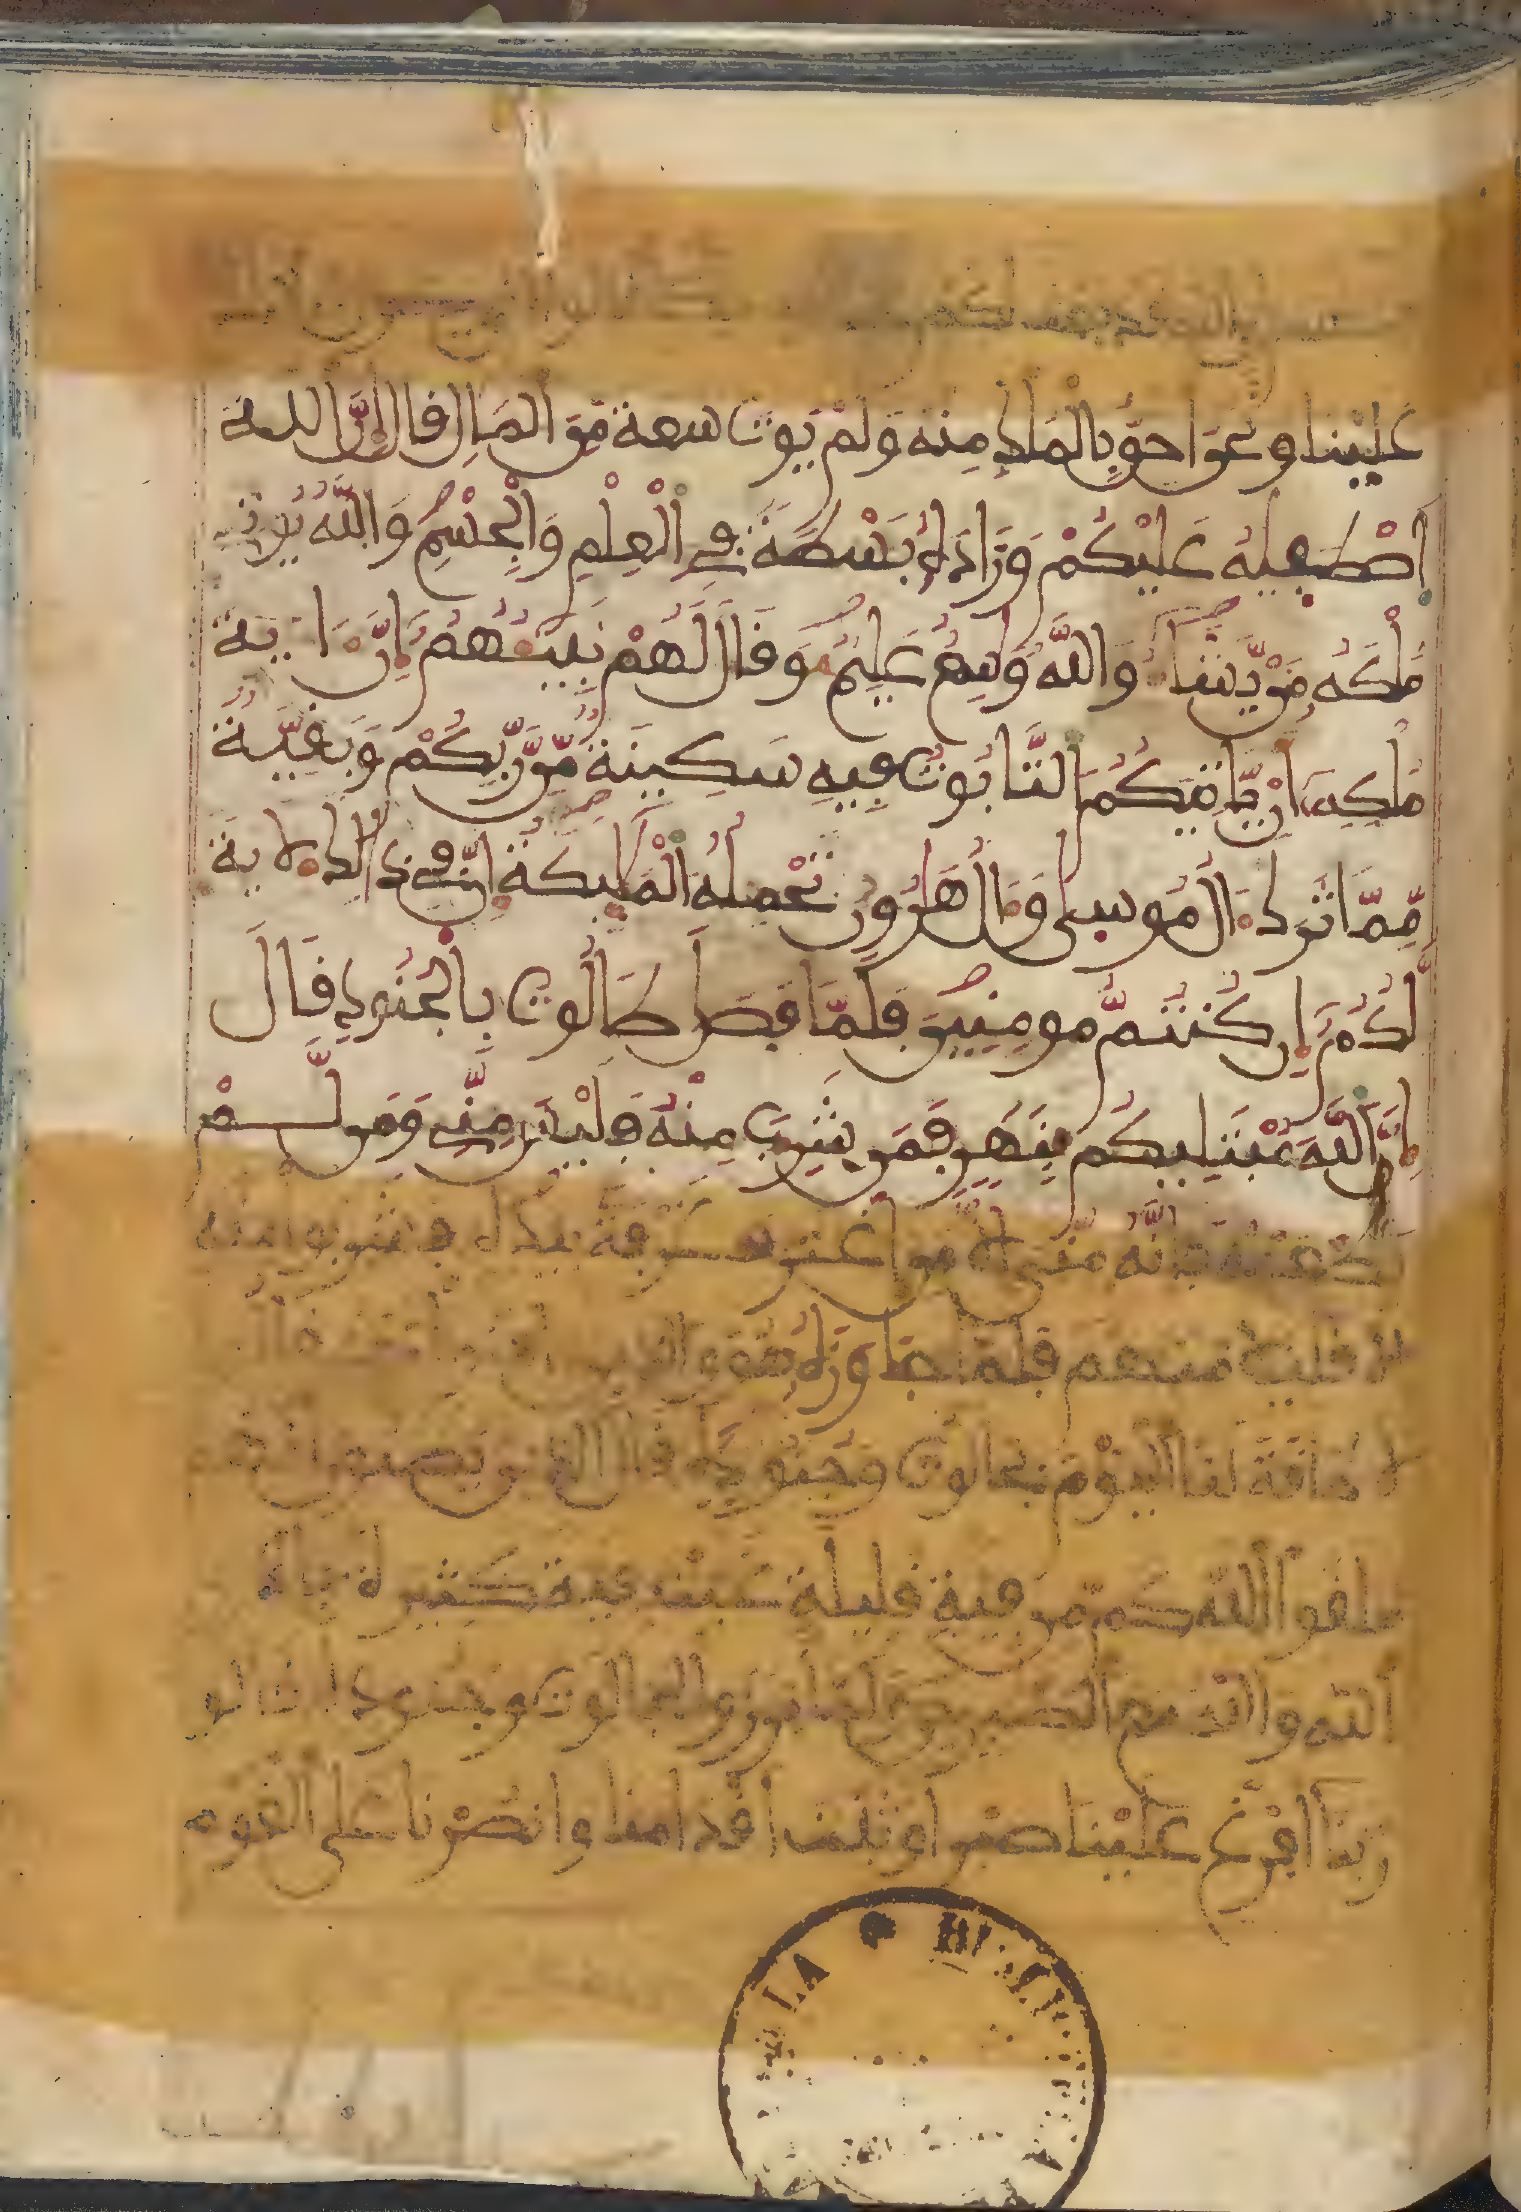 الله قد بعث لكم
علينا ونحن احق بالملك منه ولم يوت سعة من المال قال إن الله
اصطفيه عليكم وزاده بسطة في العلم والجسم والله يوتي
ملكه من يشاء والله واسع عليم وقال لهم نبيئهم إن ءاية
ملكه أن ياتيكم التابوت فيه سكينة من ربكم وبقية
مما ترك ءال موسى وءال هارون تحمله الملايكة إن في ذالك لاية
لكم إن كنتم مومنين فلما فصل طالوت بالجنود قال
إن الله مبتليكم بنهر فمن شرب منه فليس مني ومن لم
يطعمه فإنه مني إلا من اغترف غرفة بيده فشربوا منه
إلا قليلا منهم فلما جاوزه هو والذين
لا طاقة لنا اليوم بجالوت وجنوده قال الذين يظنون أنهم
ملقوا الله كم من فية قليلة غلبت فية كثيرة
الله والله مع الصبرين ولما برزوا لجالوت وجنوده قالو
ربنا افرغ علينا صبرا وثبت اقدامنا وانصرنا على القوم